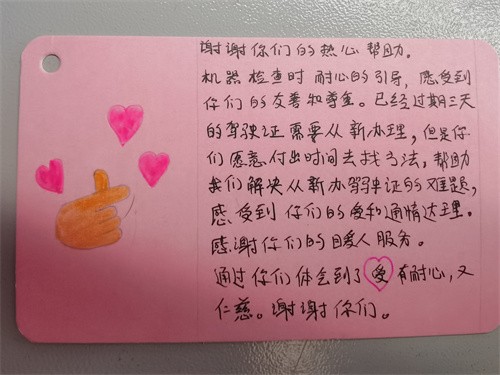 谢谢你们的热心帮助。
机器检查时耐心的引导，感受到
你们的友善和尊重。已经过期三天
的驾驶证需要从新办理，但是你
们愿意付出时间去找方法，帮助
我们解决从新办驾驶证的难题，
感受到你们的爱和通情达理。
感谢你们的暖人服务。
通过你们体会到了爱有耐心，又
仁慈。谢谢你们。